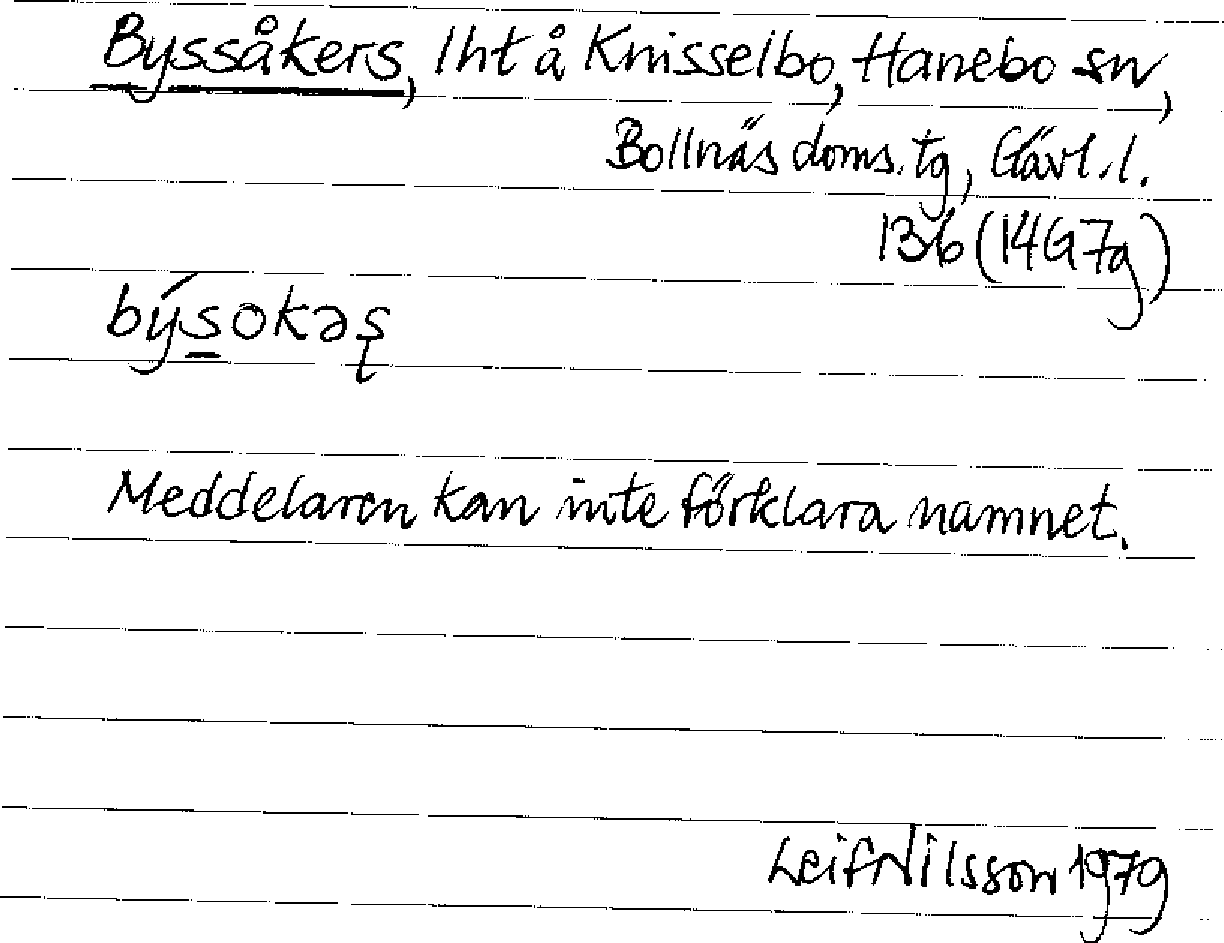 Byssåkers, lht å Knisselbo, Hanebo sn,
Bollnäs doms.tg, Gävl.l.
13b (14G7g)
býs̲okəʂ
Meddelaren kan inte förklara namnet.
Leif Nilsson 1979